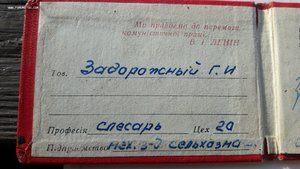 Ми прийдемо до перемоги
комуністичної праці!
В. І. ЛЕНІН
Тов. Задорожный Г. И
Професія слесарь Цех 20
Підприємство мех. з-д Сельхазма